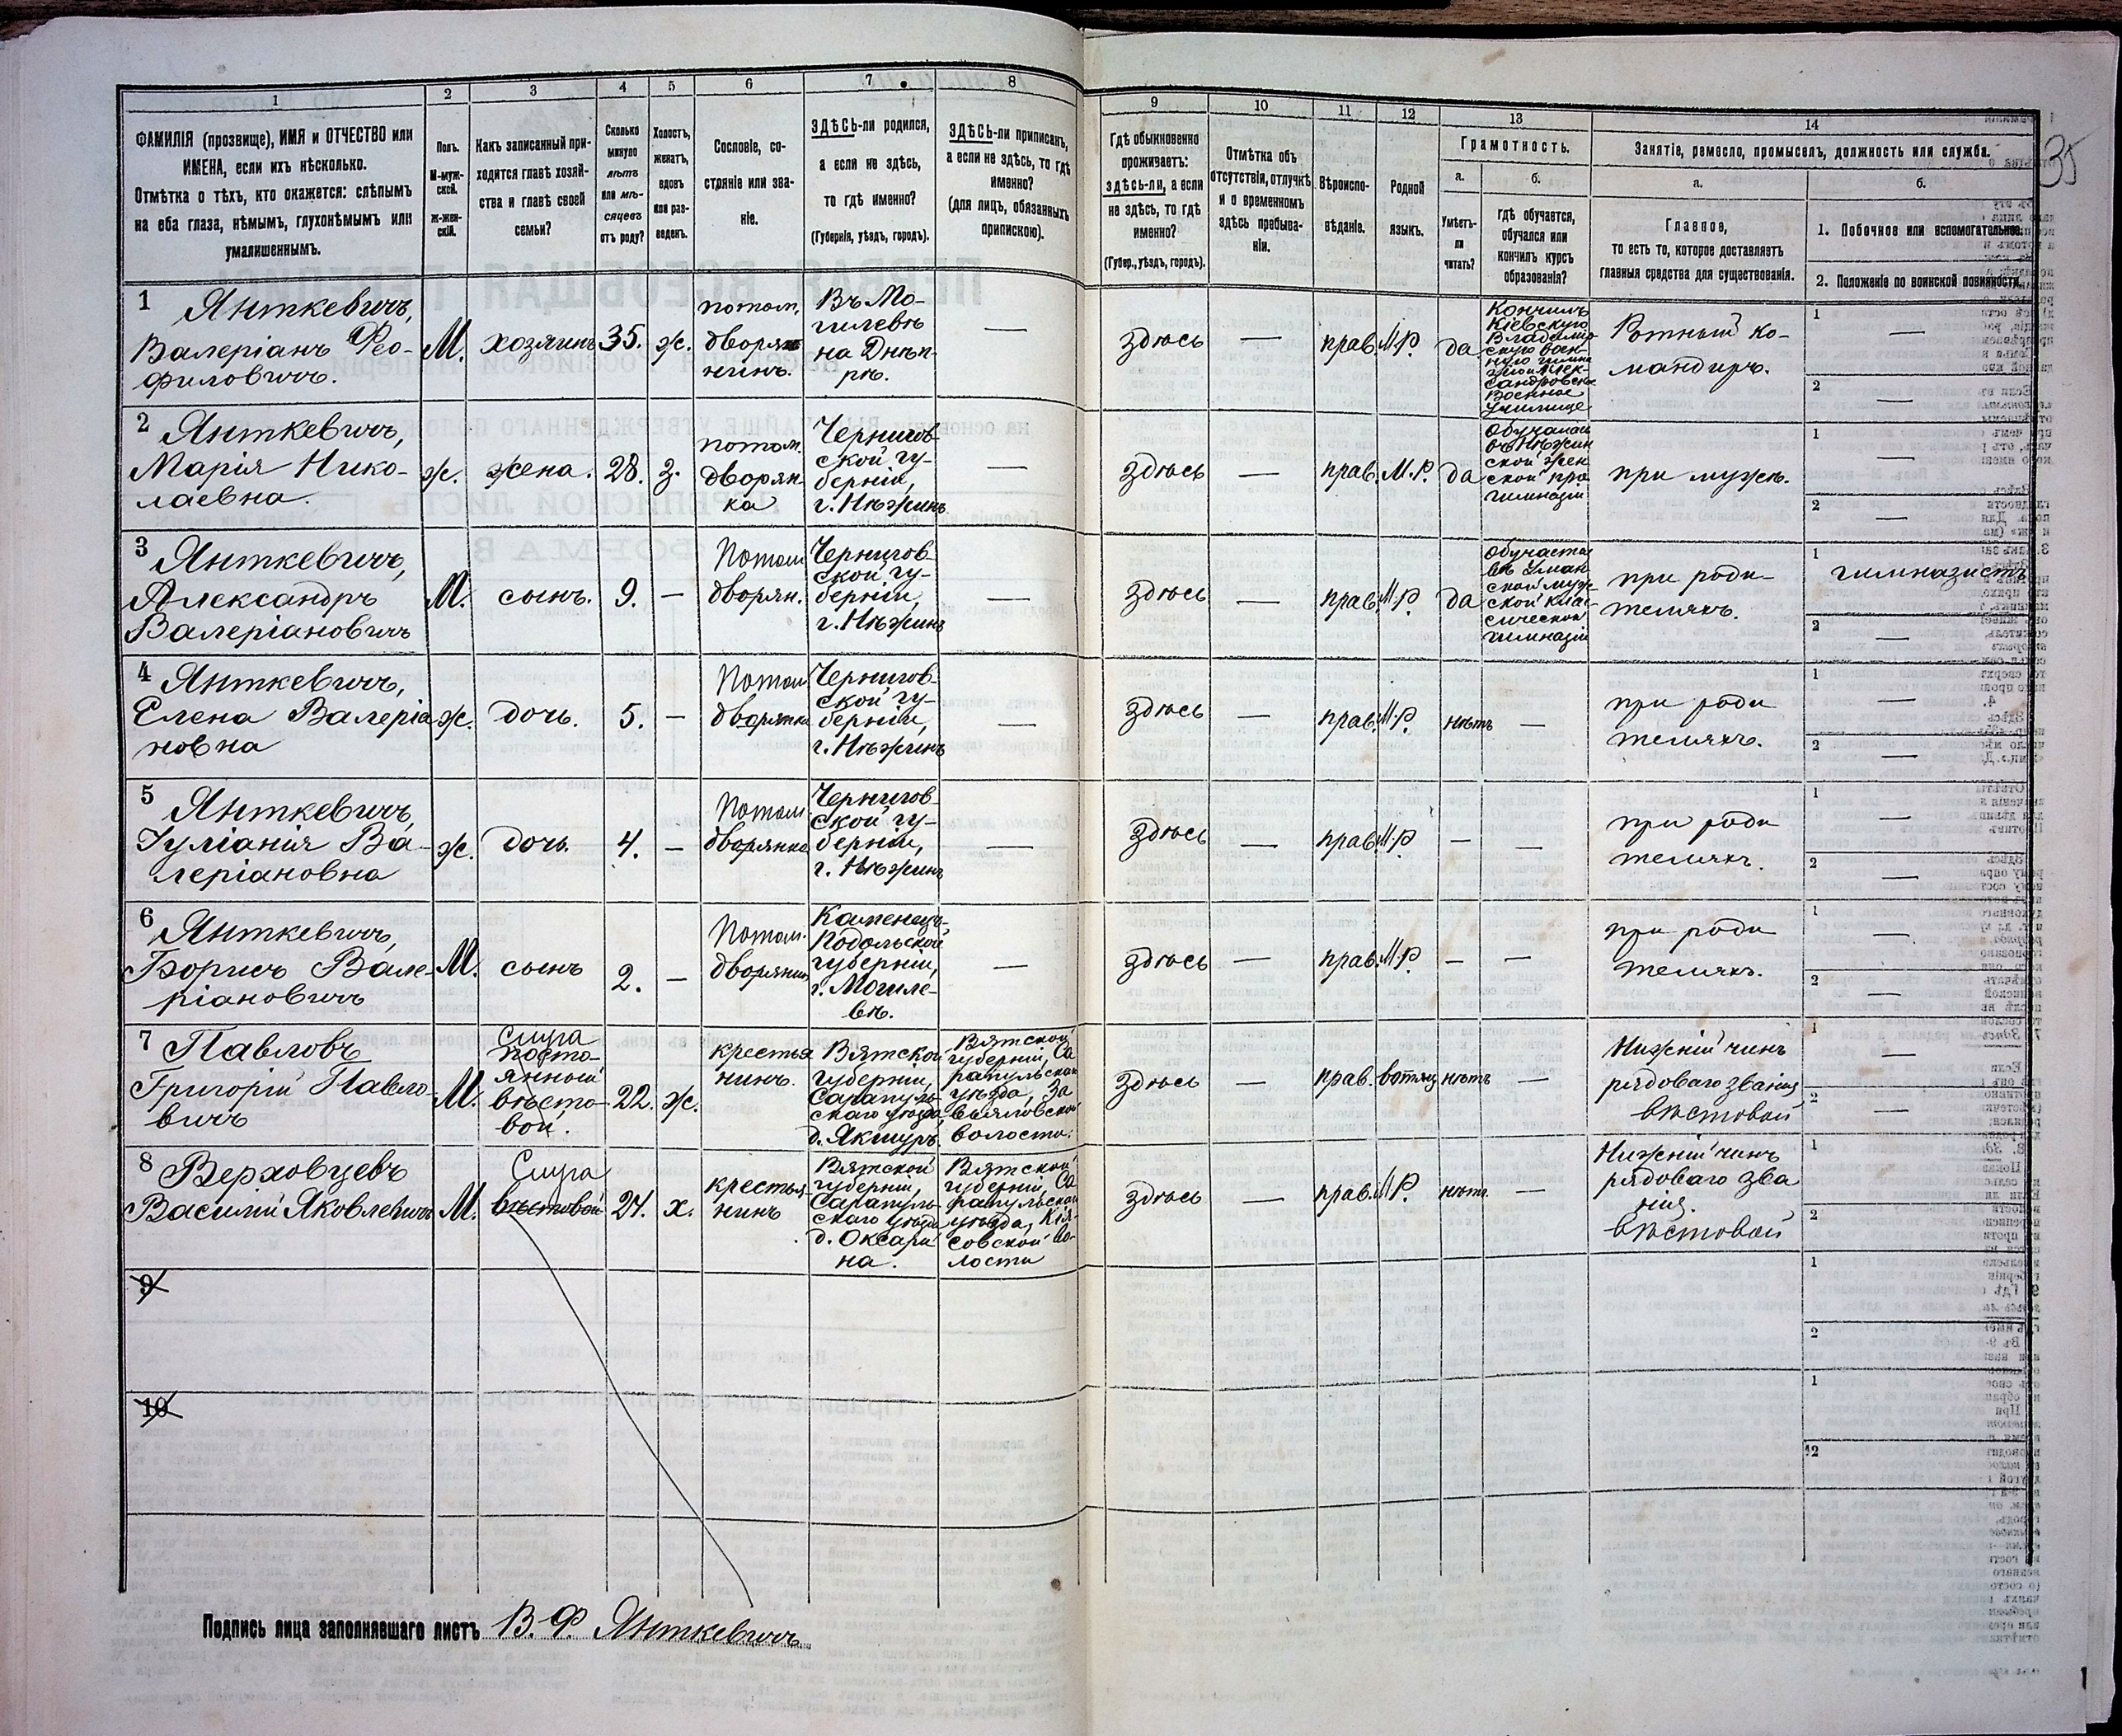 1
2
3
4
5
6
7
8
9
10
11
12
13
14
35
ФАМИЛІЯ (прозвище), ИМЯ и ОТЧЕСТВО или
ИМЕНА, если ихъ нѣсколько.
Отмѣтка о тѣхъ, кто окажется: слѣпымъ
на оба глаза, нѣмымъ, глухонѣмымъ или
умалишеннымъ.
Полъ.
М-муж-
ской.
ж-жен-
скій.
Какъ записанный при-
ходится главѣ хозяй-
ства и главѣ своей
семьи?
Сколько
минуло
лѣтъ
или мѣ-
сяцевъ
отъ роду?
Холостъ,
женатъ,
вдовъ
или раз-
веденъ.
Сословіе, со-
стояніе или зва-
ніе.
ЗДѢСЬ-ли родился,
а если не здѣсь,
то гдѣ именно?
(Губернія, уѣздъ, городъ).
ЗДѢСЬ-ли приписанъ,
а если не здѣсь, то гдѣ
именно?
(для лицъ, обязанныхъ
припискою).
Гдѣ обыкновенно
проживаетъ:
здѣсь-ли, а если
не здѣсь, то гдѣ
именно?
(Губер., уѣздъ, городъ).
Отмѣтка объ
отсутствіи, отлучкѣ
и о временномъ
здѣсь пребыва-
ніи.
Вѣроиспо-
вѣданіе.
Родной
языкъ.
Грамотность.
а.
Умѣетъ-
ли
читать?
б.
гдѣ обучается,
обучался или
кончилъ курсъ
образованія?
Занятіе, ремесло, промыселъ, должность или служба.
а.
Главное,
то есть то, которое доставляетъ
главныя средства для существованія.
б.
1. Побочное или вспомогательное.
2. Положеніе по воинской повинности.
1 Янткевичъ,
Валеріанъ Фео-
филовичъ.
М.
хозяинъ
35.
ж.
потом.
дворя-
нинъ.
Въ Мо-
гилевѣ
на Днѣп-
рѣ.
—
здѣсь
—
прав.
М.Р.
да
Кончилъ
Кіевскую
Владимір-
скую воен-
ную гимна
Алек-
сандровское
Военное
Училище
Ротный ко-
мандиръ.
1 —
2 —
2 Янткевичъ,
Марія Нико-
лаевна.
ж.
жена.
28.
з.
потом.
дворян-
ка
Чернигов-
ской гу-
берніи,
г. Нѣжинъ
—
здѣсь
—
прав.
М.Р.
да
Обучалась
въ Нѣжин
ской жен
ской про
гимназіи
при мужѣ.
1 —
2 —
3 Янткевичъ,
Александръ
Валеріановичъ
М.
сынъ.
9.
—
Потом
дворян.
Чернигов-
ской гу-
берніи,
г. Нѣжинъ
—
здѣсь
—
прав.
М.Р.
да
Обучается
въ Уман
ской муж-
ской клас-
сической
гимназіи
при роди-
теляхъ.
1 гимназистъ
2 —
4 Янткевичъ,
Елена Валеріа
новна
ж.
дочь.
5.
—
Потом
дворянка
Чернигов-
ской гу-
берніи,
г. Нѣжинъ
—
здѣсь
—
прав.
М.Р.
нѣтъ
—
при роди
теляхъ.
1 —
2 —
5 Янткевичъ,
Іуліанія Ва-
леріановна
ж.
дочь.
4.
—
Потом.
дворянка
Чернигов-
ской гу-
берніи,
г. Нѣжинъ
—
здѣсь
—
прав.
М.Р.
—
—
при роди
теляхъ.
1 —
2 —
6 Янткевичъ,
Борисъ Вале-
ріановичъ
М.
сынъ
2.
—
Потом.
дворянинъ
Каменецъ-
Подольской
губерніи,
г. Могиле-
вѣ.
—
здѣсь
—
прав.
М.Р.
—
—
при роди
теляхъ.
1 —
2 —
7 Павловъ
Григорій Павло-
вичъ
М.
Слуга
посто-
янный
вѣсто-
вой.
22.
ж.
крестья
нинъ.
Вятской
губерніи,
Сарапуль-
скаго уѣзда,
д. Якшуръ
Вятской
губерніи, Са
рапульскаго
уѣзда, За
вьяловской
волости.
здѣсь
—
прав.
вотяц
нѣтъ
—
Нижній чинъ
рядового званія
вѣстовой
1 —
2 —
8 Верховцевъ
Василій Яковлевичъ
М.
Слуга
вѣстовой
24.
х.
крестья-
нинъ
Вятской
губерніи,
Сарапуль-
скаго уѣзда
д. Оксари
на.
Вятской
губерніи, Са
рапульскаго
уѣзда, Кія-
совской во-
лости
здѣсь
—
прав.
М.Р.
нѣтъ
—
Нижній чинъ
рядового зва
нія.
вѣстовой
1
2
9
1
2
10
1
2
Подпись лица заполнявшаго листъ В. Ф. Янткевичъ